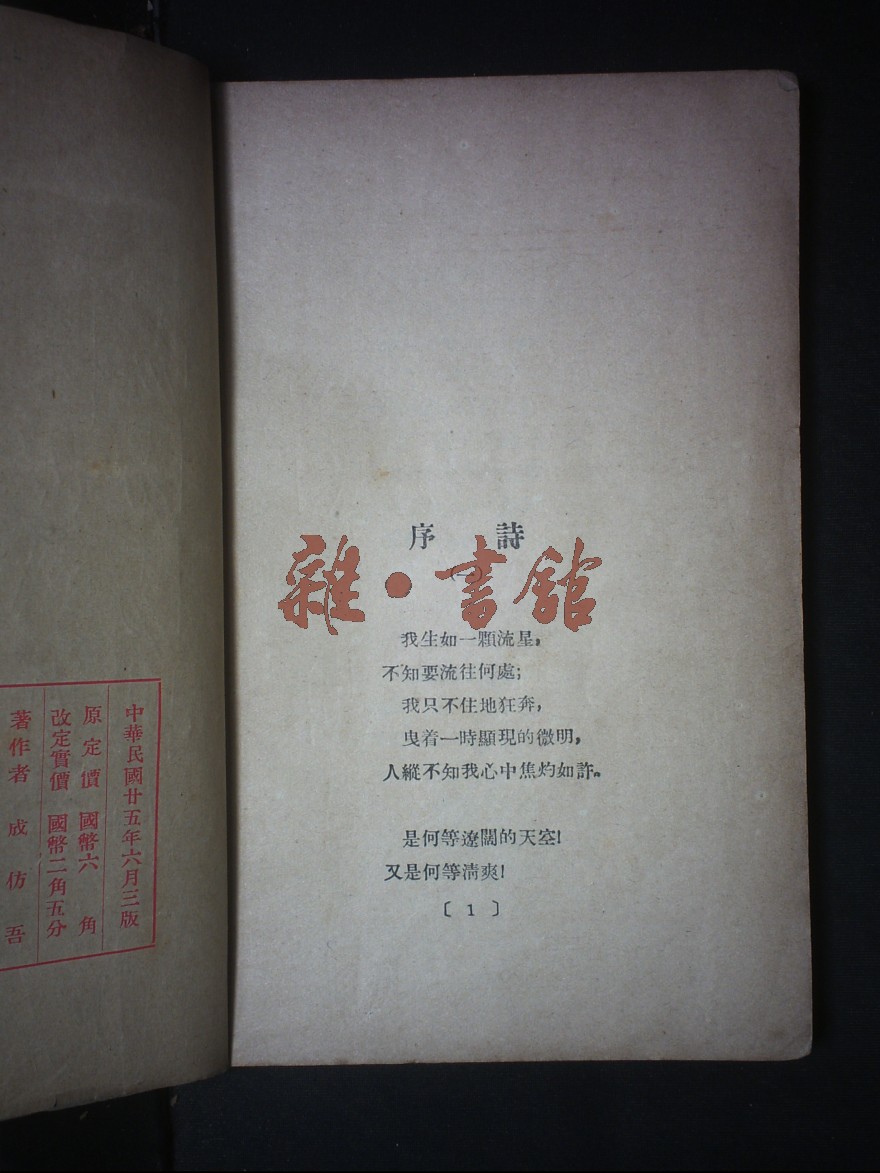 中華民國廿五年六月三版
原定價 國幣六角
改定實價 國幣二角五分
著作者 成仿吾
序詩
雜·書館
我生如一顆流星，
不知要流往何處；
我只不住地狂奔，
曳着一時顯現的微明，
人縱不知我心中焦灼如許。
是何等遼闊的天空！
又是何等清爽！
〔 1 〕